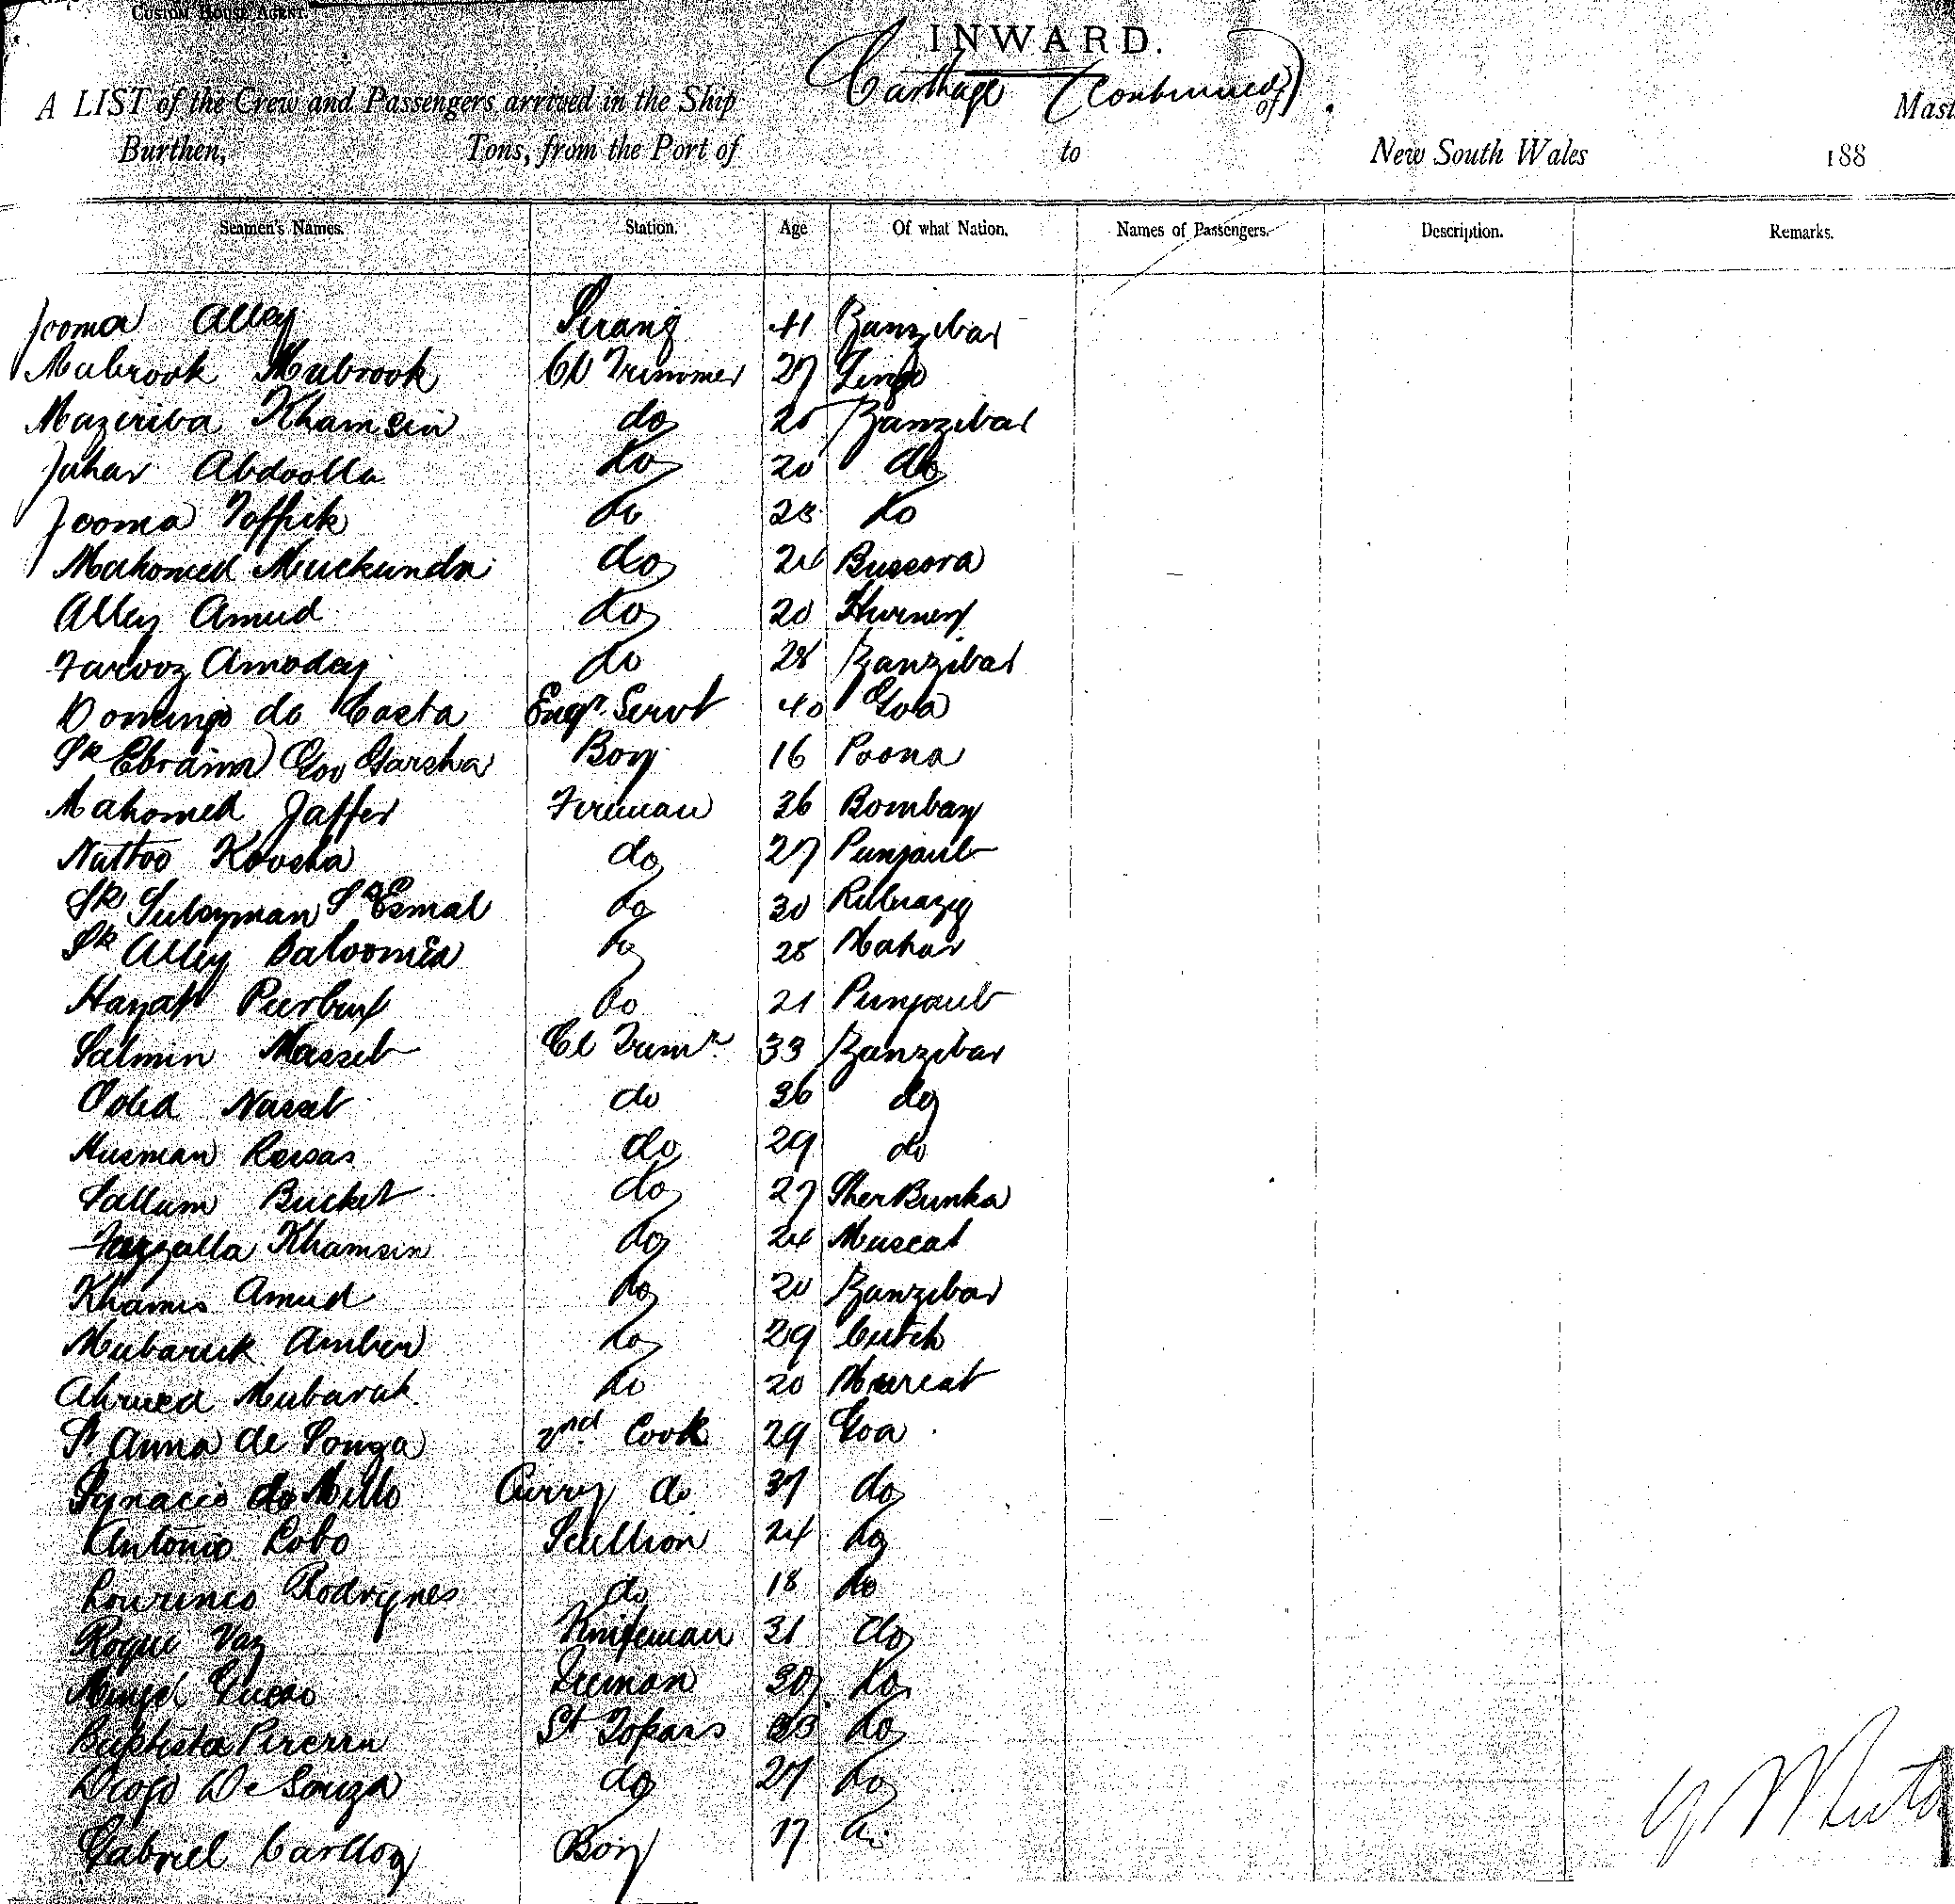 CUSTOM HOUSE AGENT.
INWARD.
A LIST of the Crew and Passengers arrived in the Ship Carthage (Continued) of Mast
Burthen, Tons, from the Port of to New South Wales 188
Seamen's Names. Station. Age Of what Nation. Names of Passengers. Description. Remarks.
Jooma Alley Serang 41 Zanzibar
Mabrook Mabrook Cl Trimmer 27
Khamsin do 25 Zanzibar
Juhar Abdoolla do 20 do
Jooma Toffick do 28 do
Mahomed Muckunda do 24 Bussora
Alley Amud do 20
Farooz Amoday do 28 Zanzibar
Domingo do Costa Engr. Servt 40 Goa
Sk Ebraim Goo Garsha Boy 16 Poona
Mahomed Jaffer Fireman 36 Bombay
Nattoo Koosha do 27 Punjaub
Sk Suleyman Sk Esmal do 30
Sk Alley Baloomia do 28 Mahar
Hayat Peerbux do 21 Punjaub
Salmin Masseb Cl Trimr. 33 Zanzibar
Nasseb do 36 do
Husman do 29 do
Sallum Bucket do 27
Fargalla Khamsin do 24 Muscat
Khamis Amud do 20 Zanzibar
Mubaruk Amber do 29 Cutch
Ahmed Mubarak do 20 Muscat
St Anna de Souza 2nd Cook 29 Goa
Ignacio do Mello Curry do 37 do
Antonio Lobo Scullion 24 do
Lourenco Rodrignes do 18 do
Roque Vaz Knifeman 31 do
do
Baptista Pererra St Topass 33 do
Diogo De Souza do 27 do
Gabriel Boy 17 do